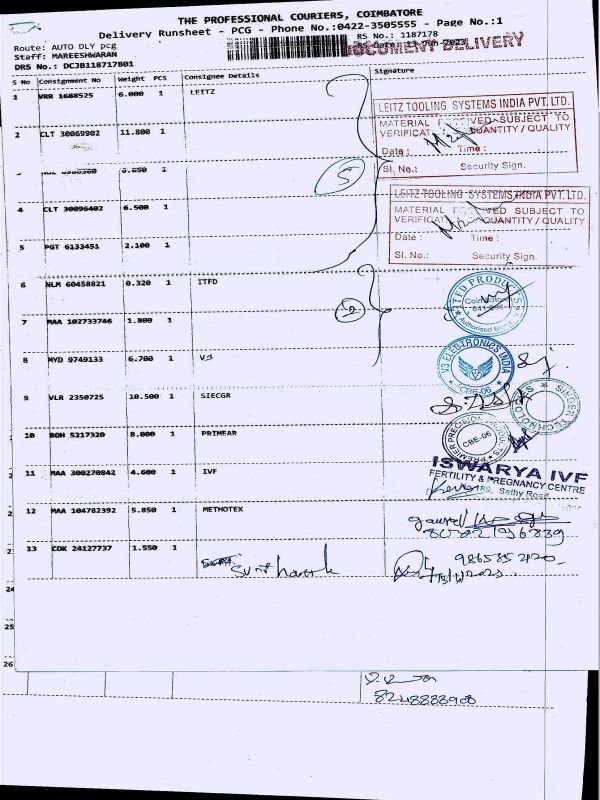 THE PROFESSIONAL COURIERS, COIMBATORE
Delivery Runsheet - PCG - Phone No.:0422-3505555 - Page No.:1
Route: AUTO DLY pcg RS No.: 1187178
Staff: MAREESHWARAN RS Date: 13-Jun-2023
DOCUMENT DELIVERY
DRS No.: DCJB118717801
S No Consignment No Weight PCS Consignee Details Signature
1 VRR 1688525 6.000 1 LEITZ
2 CLT 30069902 11.800 1
LEITZ TOOLING SYSTEMS INDIA PVT. LTD.
MATERIAL RECEIVED SUBJECT TO
VERIFICATION QUANTITY / QUALITY
Date : Time :
Sl. No.: Security Sign.
1
5
4 CLT 30096402 6.500 1
5 PGT 6133451 2.100 1
LEITZ TOOLING SYSTEMS INDIA PVT. LTD.
MATERIAL RECEIVED SUBJECT TO
VERIFICATION QUANTITY / QUALITY
Date : Time :
Sl. No.: Security Sign.
6 NLM 60458821 0.320 1 ITFD
Coimbatore
Authorised
7 MAA 102733746 1.800 1
8 MYD 9749133 6.700 1 V3
V3 ELECTRONICS INDIA
CBE-06
9 VLR 2350725 10.500 1 SIECGR
10 BOH 5217320 8.000 1 PRIMEAR
PREMIER PRECISION PRODUCTS
CBE-06
11 MAA 300270842 4.600 1 IVF
ISWARYA IVF
FERTILITY & PREGNANCY CENTRE
Sathy Road
12 MAA 104782392 5.850 1 METHOTEX
13 COK 24127737 1.550 1
24
25
26
8248888908